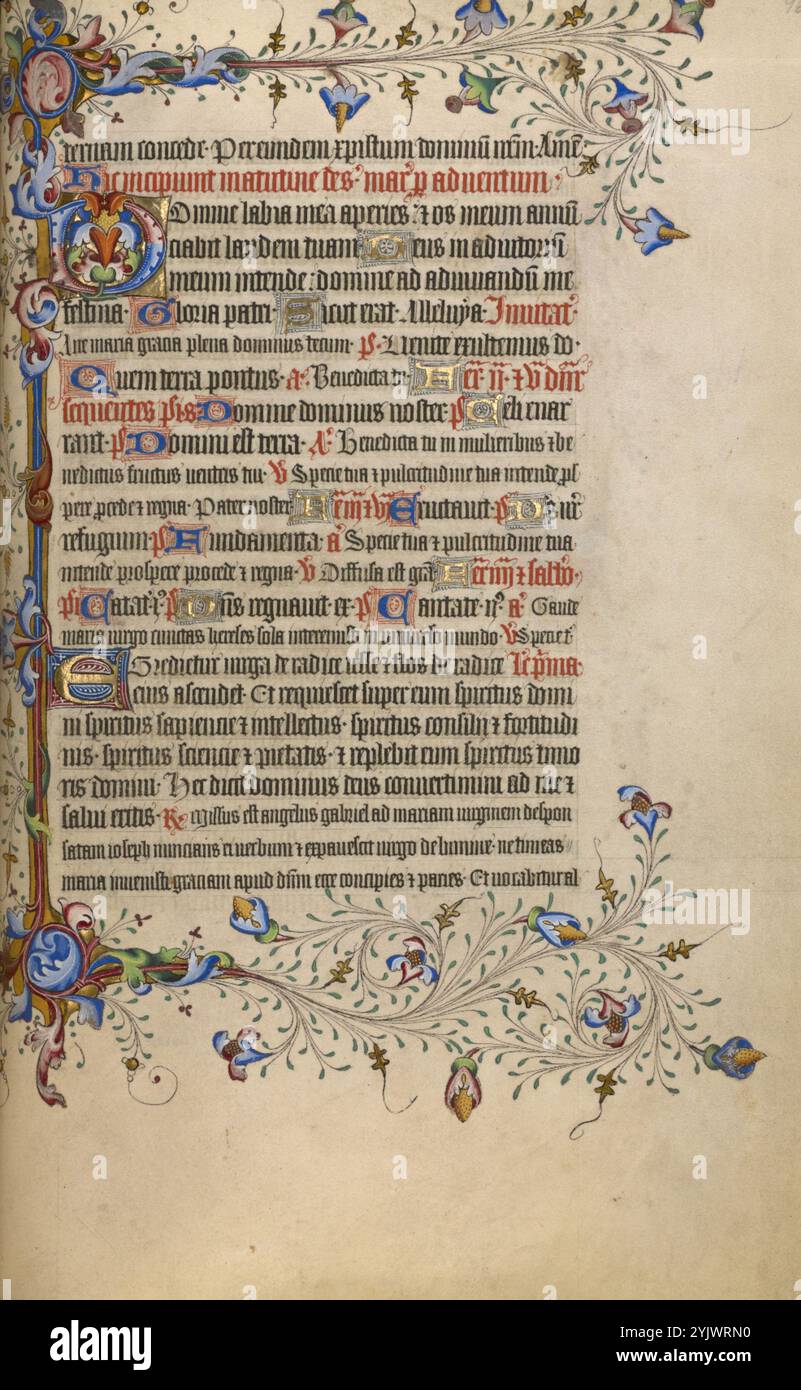 ternam concede. Per eundem xpistum dominū nrm. Amē
Hic incipiunt matutine des. mar. p adventum.
Domine labia mea aperies. ⁊ os meum annū
ciabit laudem tuam Deus in adiutoriū
meum intende: domine ad adiuvandū me
festina. Gloria patri. Sicut erat. Alleluya. Invitat.
Ave maria gracia plena dominus tecum. ps. Venite exultemus do.
Quem terra pontus. a. Benedicta tu.
sequentes ps Domine dominus noster ps Celi enar
rant. ps Domini est terra. A. Benedicta tu in mulieribus ⁊ be
nedictus fructus ventris tui. V Specie tua ⁊ pulcritudine tua intende ps
pere pcede ⁊ regna. Pater noster Eructavit. ps D. nr
refugium. ps Fundamenta. a Specie tua ⁊ pulcritudine tua
intende prospere procede ⁊ regna. V Diffusa est grā
ps Cātate. i. ps Dns regnavit. ex. ps Cantate. ii. a. Gaude
maria virgo cunctas hereses sola interemisti in universo mundo. V Specie t.
Egredietur virga de radice iesse ⁊ flos de radice Lc. pma.
eius ascendet. Et requiescet super eum spiritus domi
ni spiritus sapiencie ⁊ intellectus. spiritus consilij ⁊ fortitudi
nis. spiritus sciencie ⁊ pietatis. ⁊ replebit eum spiritus timo
ris domini. Hec dicit dominus deus convertimini ad me ⁊
salvi eritis. R. Missus est angelus gabriel ad mariam virginem despon
satam ioseph nuncians ei verbum ⁊ expavescit virgo de lumine. ne timeas
maria invenisti graciam apud dnm ecce concipies ⁊ paries. Et vocabitur al
alamy
Image ID: 2YJWRN0
www.alamy.com